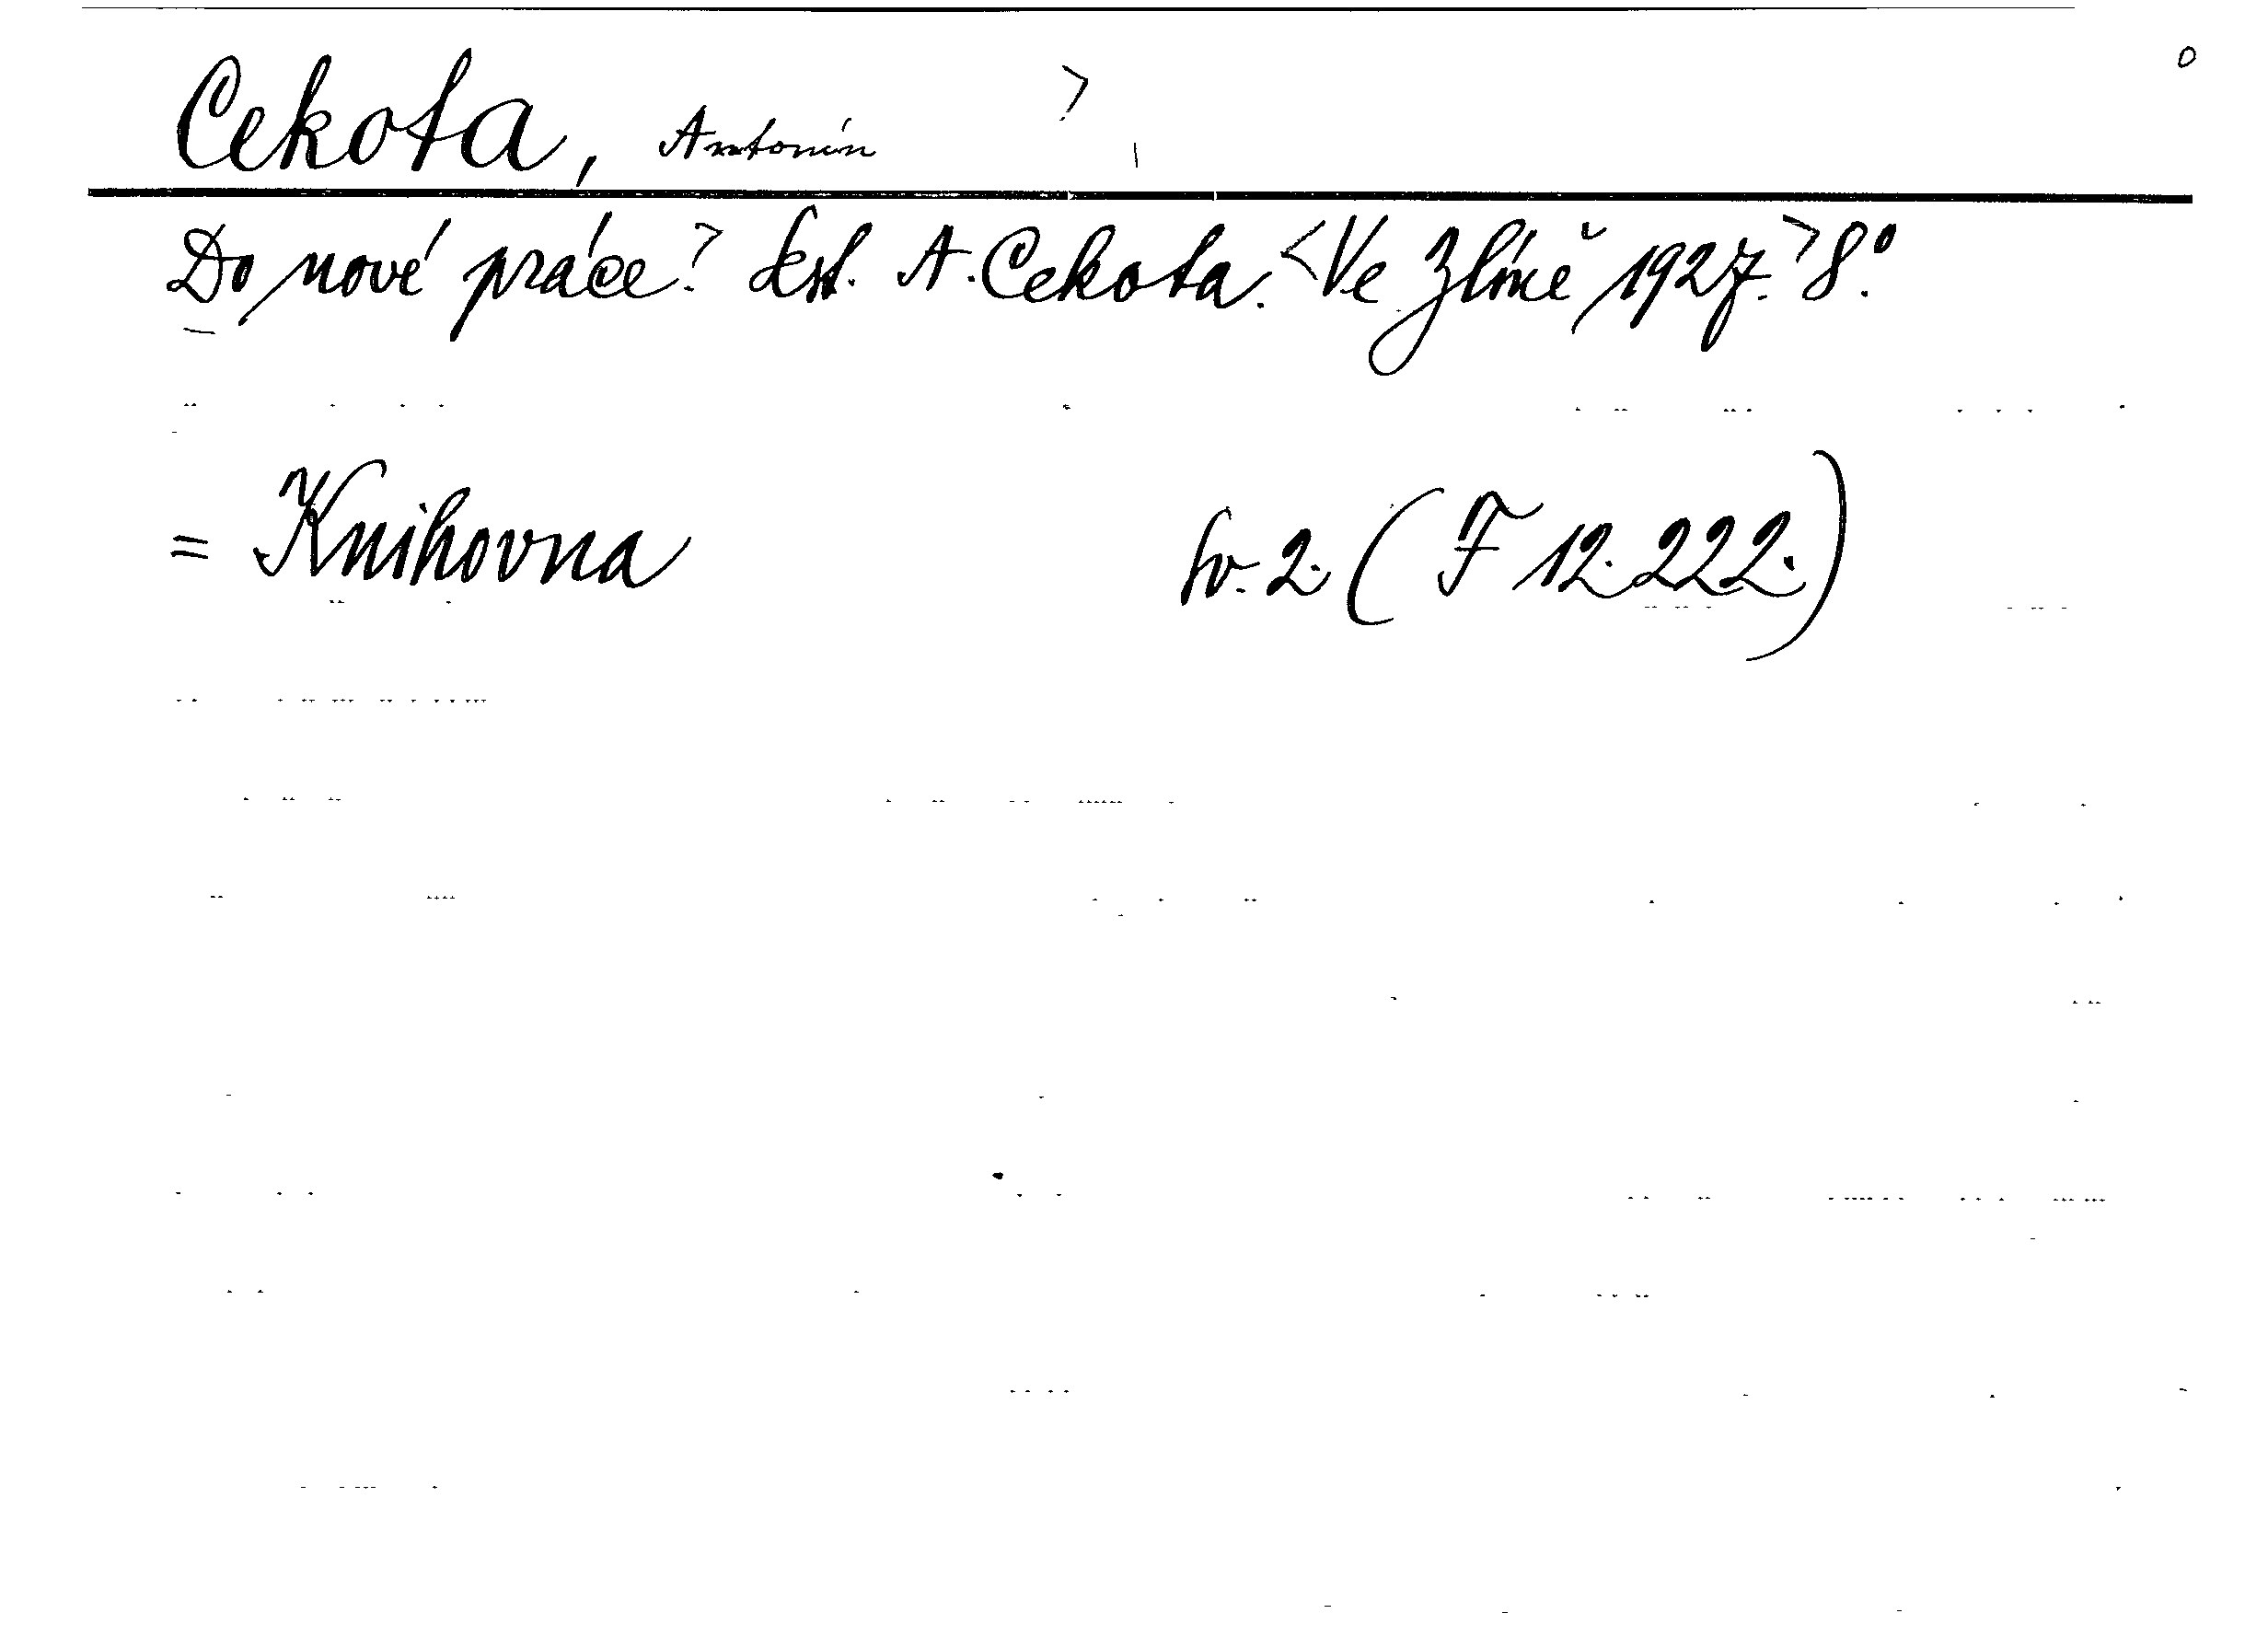 Cekota, Antonín
Do nové práce! Sest. A. Cekota. <Ve Zlíně 1927.> 8.°
= Knihovna Sv. 2. (F 12.222.)